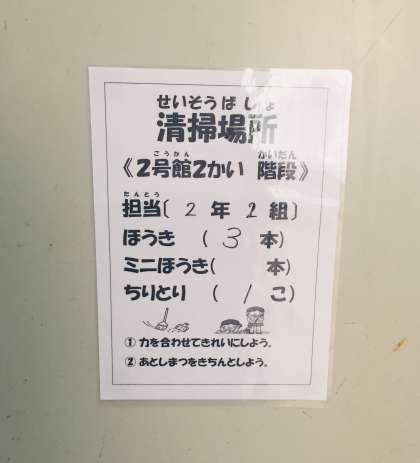 せいそうばしょ
清掃場所
ごうかん かいだん
《2号館2かい 階段》
たんとう
担当〔 2 年 2 組〕
ほうき （ 3 本）
ミニほうき（ 本）
ちりとり （ 1 こ）
① 力を合わせてきれいにしよう。
② あとしまつをきちんとしよう。